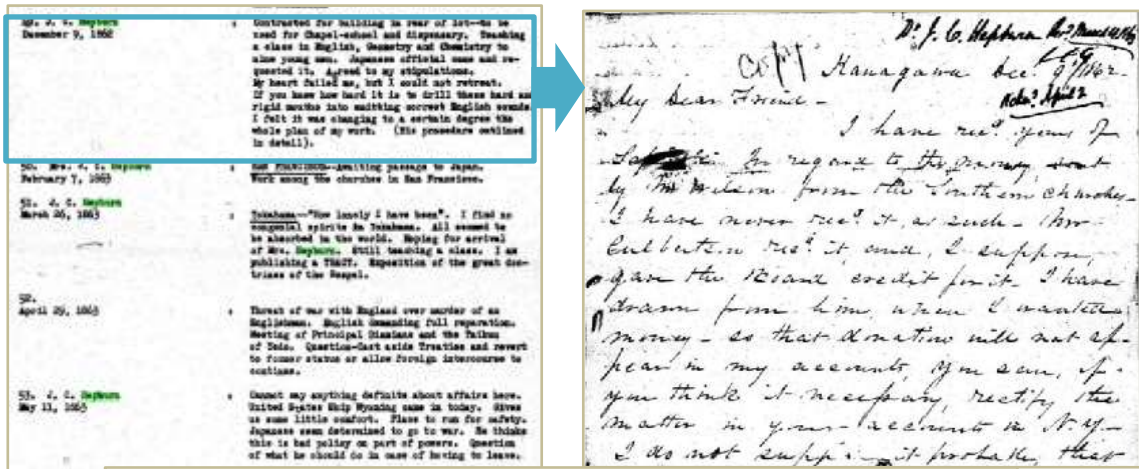 49. J. C. Hepburn
December 9, 1862
: Contracted for building in rear of lot--to be
used for Chapel-school and dispensary. Teaching
a class in English, Geometry and Chemistry to
nine young men. Japanese official came and re-
quested it. Agreed to my stipulations.
My heart failed me, but I could not retreat.
If you knew how hard it is to drill these hard and
rigid mouths into emitting correct English sounds
I felt it was changing to a certain degree the
whole plan of my work. (His procedure outlined
in detail).
50. Mrs. J. C. Hepburn
February 7, 1863
: SAN FRANCISCO--Awaiting passage to Japan.
Work among the churches in San Francisco.
51. J. C. Hepburn
March 26, 1863
: Yokohama--"How lonely I have been". I find no
congenial spirits in Yokohama. All seemed to
be absorbed in the world. Hoping for arrival
of Mrs. Hepburn. Still teaching a class. I am
publishing a TRACT. Exposition of the great doc-
trines of the Gospel.
52.
April 29, 1863
: Threat of war with England over murder of an
Englishman. English demanding full reparation.
Meeting of Principal Dimaios and the Taikun
of Yedo. Question-Cast aside Treaties and revert
to former status or allow foreign intercourse to
continue.
53. J. C. Hepburn
May 11, 1863
: Cannot say anything definite about affairs here.
United States Ship Wyoming came in today. Gives
us some little comfort. Place to run for safety.
Japanese seem determined to go to war. He thinks
this is bad policy on part of powers. Question
of what he should do in case of having to leave.
Dr. J. C. Hepburn
copy
Kanagawa Dec. 9th 1862
My Dear Friend -
I have recd. yours of
In regard to the money sent
by Mr Wilson from the Southern churches
I have never recd. it, as such - Mr
Culbertson recd. it, and, I suppose,
gave the Board credit for it. I have
drawn from him, when I wanted
money - so that donation will not ap-
pear in my accounts, you can, if
you think it necessary, rectify the
matter in your accounts in N.Y. -
I do not suppose it probable, that